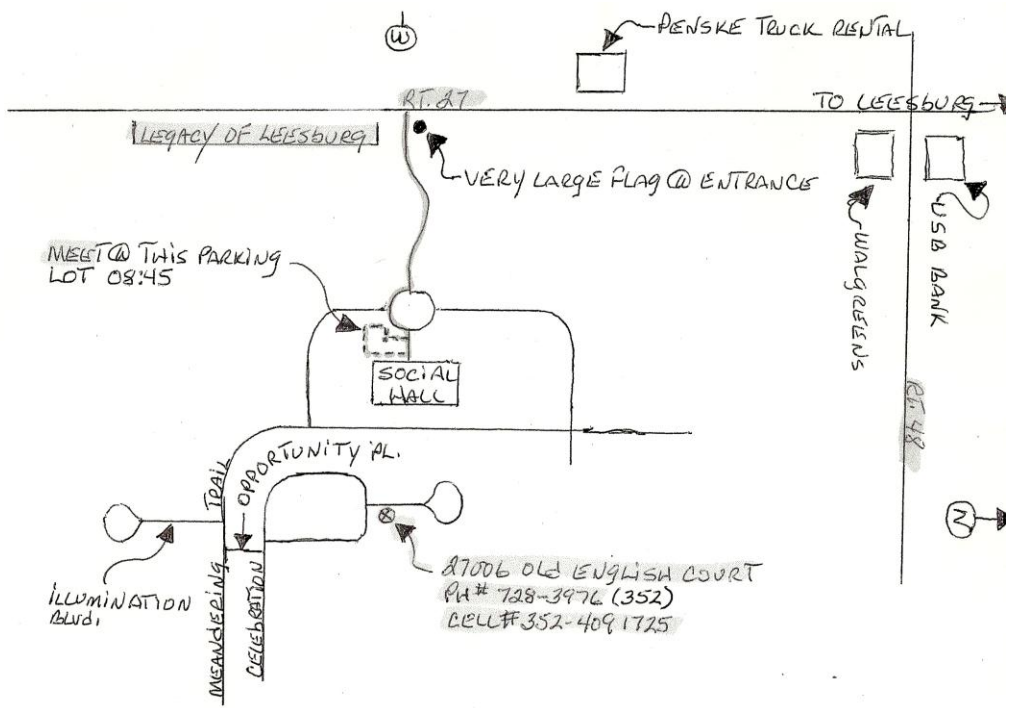 PENSKE TRUCK RENTAL
W
RT. 27
TO LEESBURG
LEGACY OF LEESBURG
VERY LARGE FLAG @ ENTRANCE
WALGREENS
USB BANK
MEET @ THIS PARKING
LOT 08:45
SOCIAL
HALL
RT. 48
OPPORTUNITY PL.
MEANDERING TRAIL
CELEBRATION
N
ILLUMINATION
BLVD.
27006 OLD ENGLISH COURT
PH# 728-3976 (352)
CELL# 352-409 1725